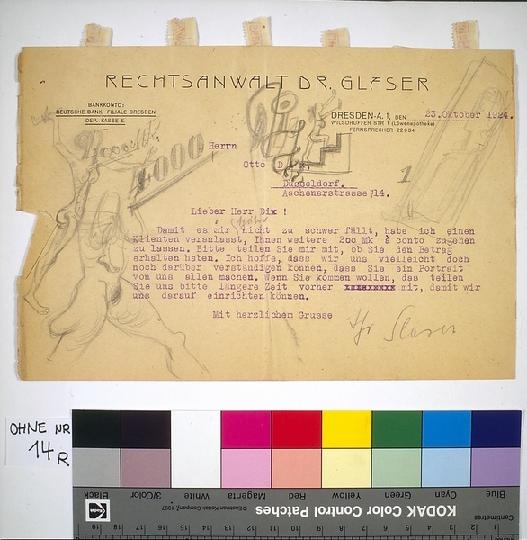 RECHTSANWALT DR. GLASER
BANKKONTO:
DEUTSCHE BANK FILIALE DRESDEN
DEP. KASSE E
DRESDEN-A. 1, DEN 23. Oktober 1924.
WILSDRUFFER STR. 1 (Löwenapotheke)
FERNSPRECHER
Herrn
Otto D
4000
Düsseldorf.
Aschenerstrasse 14.
1
Lieber Herr Dix !
Damit es mir nicht zu schwer fällt, habe ich einen
Klienten veranlasst, Ihnen weitere 200 Mk à conto zugehen
zu lassen. Bitte teilen Sie mir mit, ob Sie den Betrag
erhalten haben. Ich hoffe, dass wir uns vielleicht doch
noch darüber verständigen können, dass Sie ein Portrait
von uns allen machen. Wenn Sie kommen wollen, das teilen
Sie uns bitte längere Zeit vorher mit, damit wir
uns darauf einrichten können.
Mit herzlichen Grusse
Ihr Glaser
OHNE NR
14 R
Black 3/Color White Magenta Red Yellow Green Cyan Blue
KODAK Color Control Patches
Centimetres
Kodak